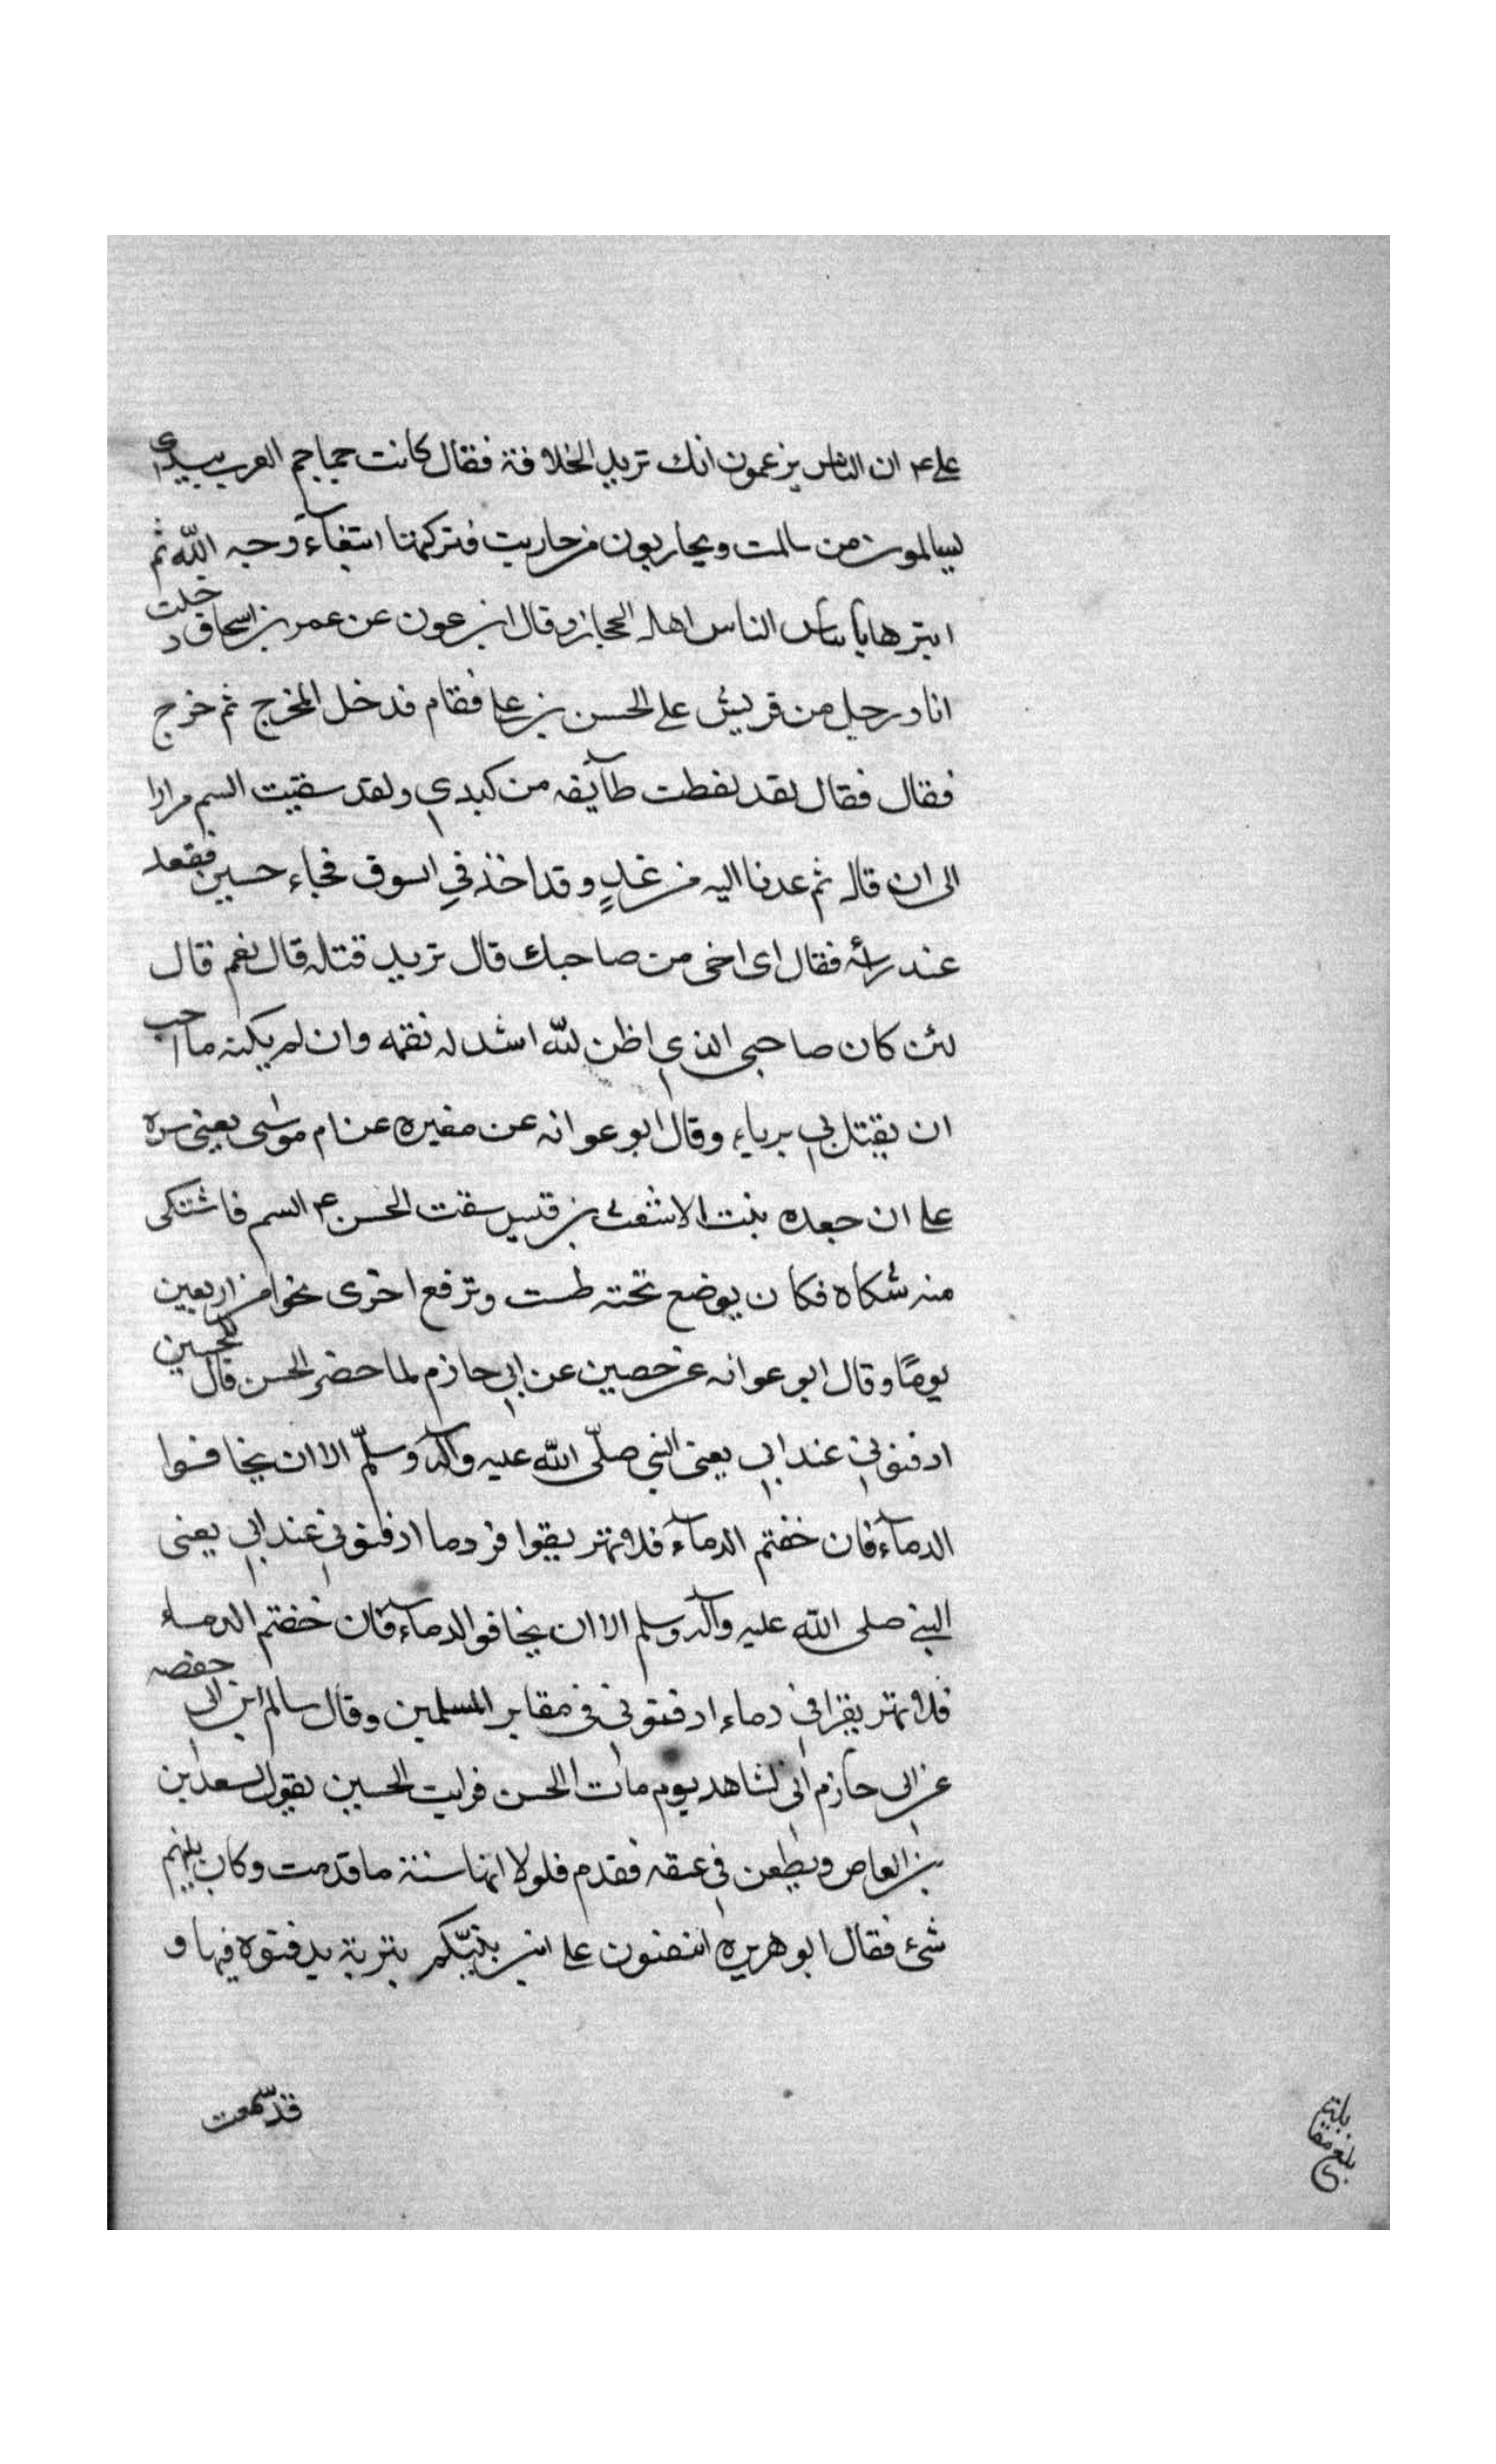 على عم ان الناس يزعمون انك تريد الخلافة فقال كانت جماجم العرب بيدي
يسالمون من سالمت ويحاربون من حاربت فتركتها ابتغاء وجه الله ثم
ابتزها باتياس الناس اهل الحجاز وقال ابن عون عن عمر بن اسحاق دخلت
انا ورجل من قريش على الحسن بن على فقام فدخل المخرج ثم خرج
فقال فقال لقد لفظت طآيفه من كبدي ولقد سقيت السم مرارا
الى ان قال ثم عدنا اليه من غدٍ وقد اخذ في السوق فجاء حسين فقعد
عند رأسه فقال اى اخى من صاحبك قال تريد قتله قال نعم قال
لئن كان صاحبى الذي اظن لله اشد له نقمه وان لم يكنه ما احب
ان يقتل بي برياء وقال ابو عوانه عن مغيره عن ام موسى يعنى سره
على ان جعده بنت الاشعث بن قيس سقت الحسن عم السم فاشتكى
منه شكاه فكان يوضع تحته طست وترفع اخرى نحوا من اربعين
يومًا وقال ابو عوانه عن حصين عن ابي حازم لما حضر الحسن قال للحسين
ادفنوني عند ابي يعنى النبي صلّى الله عليه وآله وسلّم الا ان يخافوا
الدمآء فان خفتم الدمآء فلا تهتريقوا في دما ادفنوني عند ابي يعنى
النبي صلى الله عليه وآله وسلم الا ان يخافوا الدمآء فان خفتم الدمآء
فلا تهتريقوا في دماء ادفنوني فى مقابر المسلمين وقال سالم ابن ابي حفصه
عن ابى حازم انى لشاهد يوم مات الحسن فرايت الحسين يقول لسعد بن
بن العاص ويطعن في عنقه فقدم فلولا انها سنة ما قدمت وكان بينهم
شئ فقال ابو هريره اتنفسون على ابن نبيّكم بتربة يدفنوه فيها و
قد سمعت
بلغ مقابلة